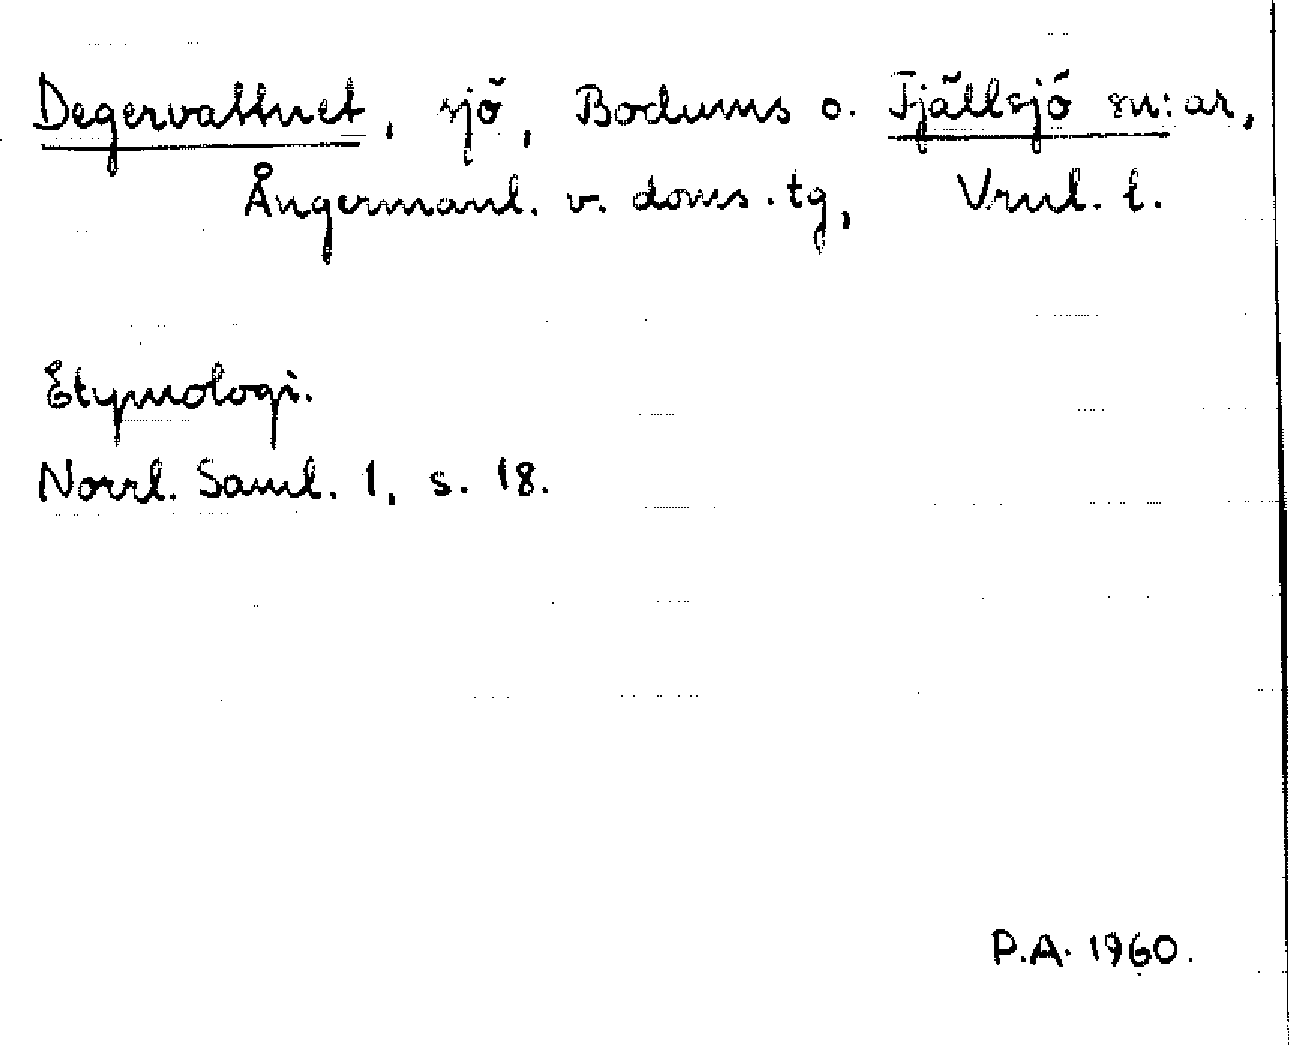 Degervattnet, sjö, Bodums o. Fjällsjö sn:ar,
Ångermanl. v. doms.tg, Vrnl. l.
Etymologi.
Norrl. Saml. 1, s. 18.
P.A. 1960.